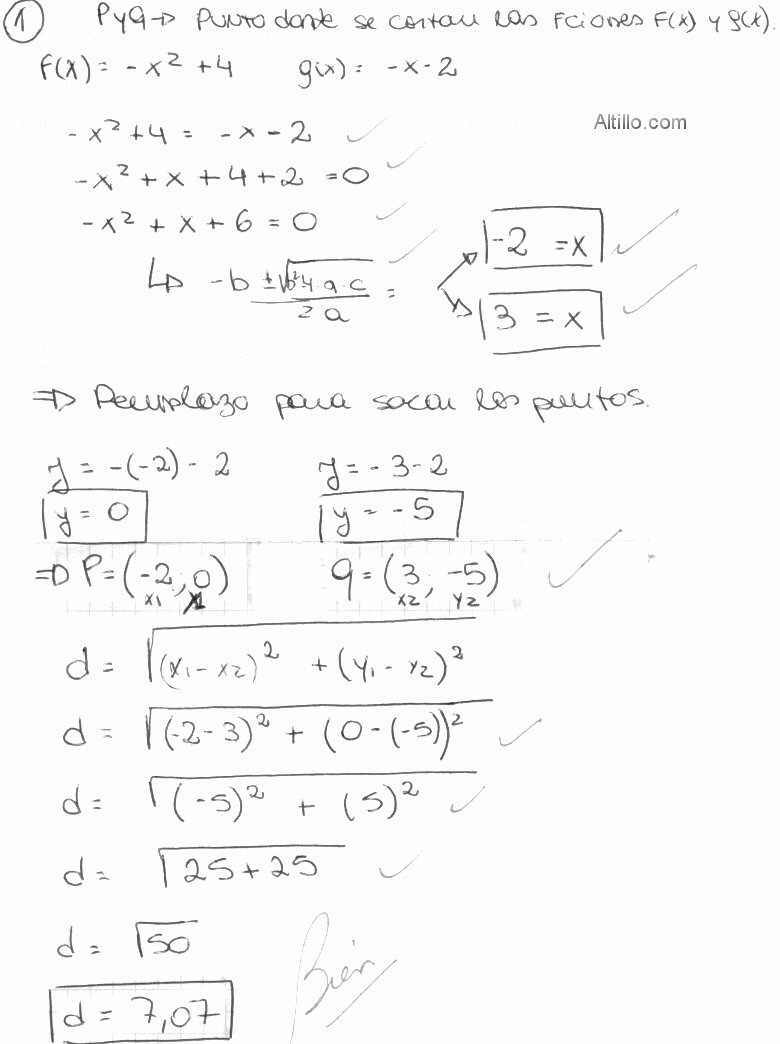 ① P y Q → PUNTO donde se cortan las Fciones F(x) y g(x).
F(x) = -x² + 4    g(x) = -x - 2
Altillo.com
-x² + 4 = -x - 2
-x² + x + 4 + 2 = 0
-x² + x + 6 = 0
↳ (-b ± √(b² - 4·a·c)) / 2a =
-2 = x
3 = x
⇒ Reemplazo para sacar los puntos.
y = -(-2) - 2    y = -3 - 2
y = 0    y = -5
⇒ P = (-2, 0)    Q = (3; -5)
x1    x2    y2
d = √((x1 - x2)² + (y1 - y2)²)
d = √((-2 - 3)² + (0 - (-5))²)
d = √((-5)² + (5)²)
d = √(25 + 25)
d = √50
Bien
d = 7,07